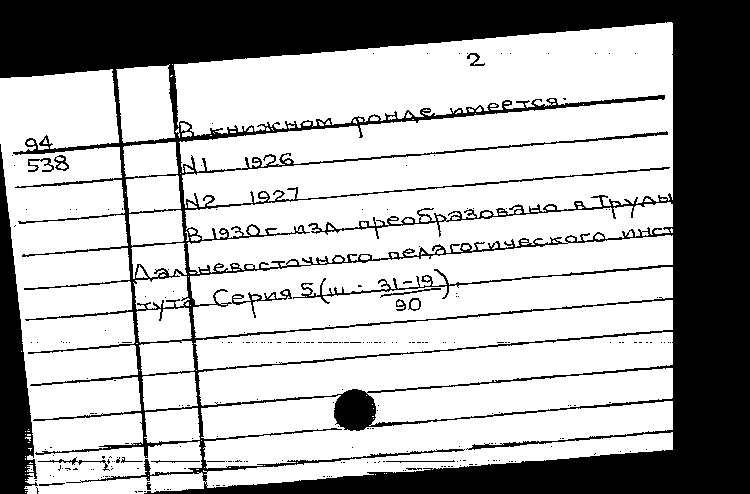 2
94
538
В книжном фонде имеется:
N1 1926
N2 1927
В 1930 г. изд. преобразовано в Труды
Дальневосточного педагогического инсти
тута Серия 5 (ш: 31-19/90).